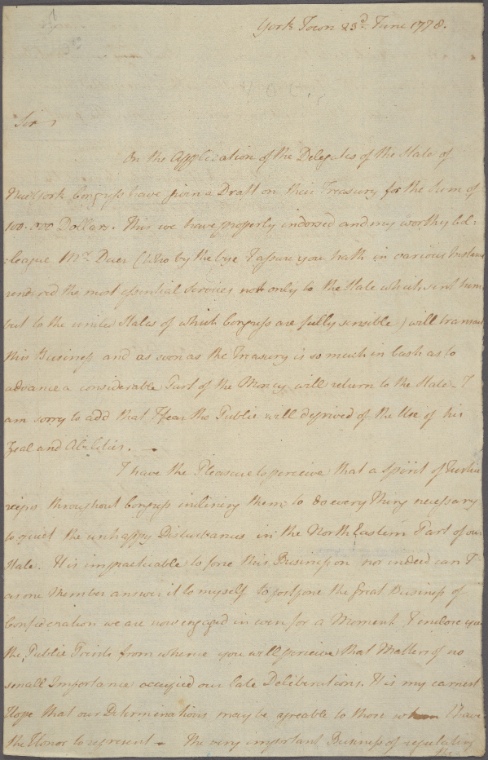 York Town 23d. June 1778.
Sir,
On the Application of the Delegates of the State of
New York Congress have given a Draft on their Treasury for the Sum of
100.000 Dollars. This we have properly indorsed and my worthy Col-
:league Mr. Duer (who by the bye I assure you hath in various Instances
rendered the most essential Services not only to the State which sent him
but to the united States of which Congress are fully sensible) will transact
this Business and as soon as the Treasury is so much in Cash as to
advance a considerable Part of the Money will return to the State. I
am sorry to add that I fear the Public will deprived of the Use of his
Zeal and Abilities. —
I have the Pleasure to perceive that a Spirit of
reigns throughout Congress inclining them to do every Thing necessary
to quiet the unhappy Disturbances in the North Eastern Part of our
State. It is impracticable to force this Business on nor indeed can I
as one Member answer it to myself to postpone the great Business of
Confederation we are now engaged in even for a Moment. I enclose you
the Public Prints from whence you will perceive that Matters of no
small Importance occupied our late Deliberations. It is my earnest
Hope that our Determinations may be agreable to those whom I have
the Honor to represent — The very important Business of regulating
the